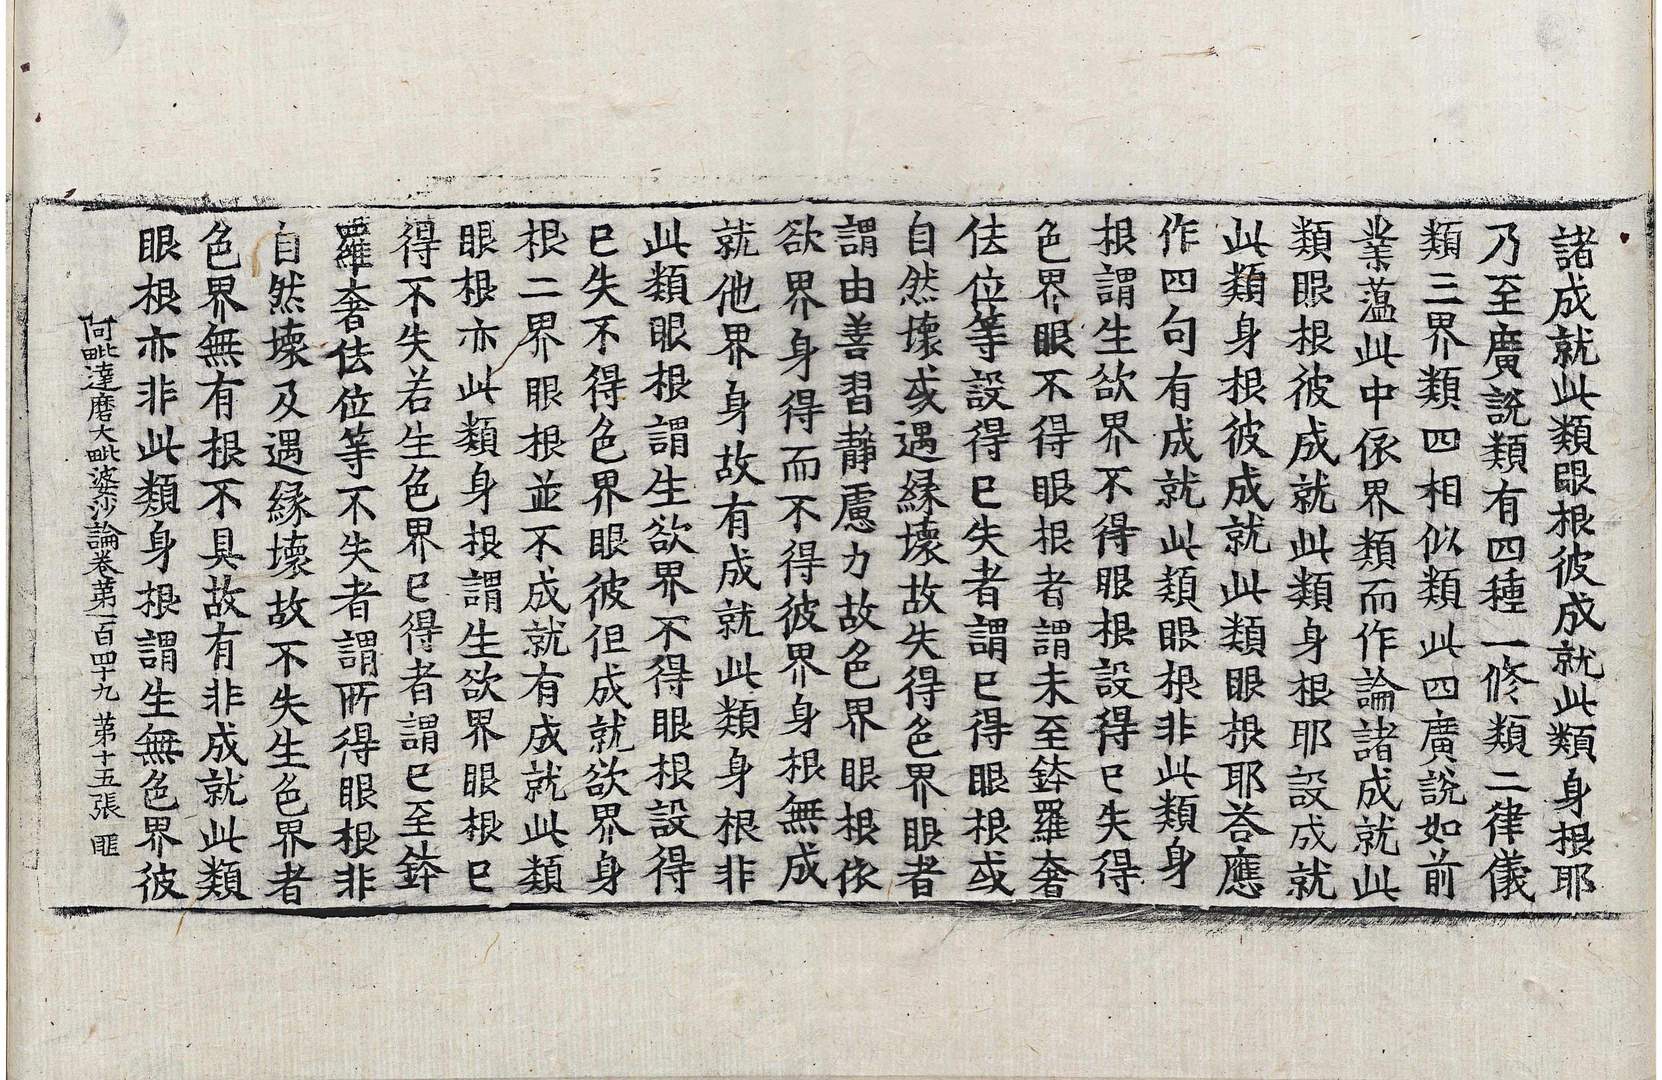 諸成就此類眼根彼成就此類身根耶
乃至廣說類有四種一修類二律儀
類三界類四相似類此四廣說如前
業蘊此中依界類而作論諸成就此
類眼根彼成就此類身根耶設成就
此類身根彼成就此類眼根耶荅應
作四句有成就此類眼根非此類身
根謂生欲界不得眼根設得已失得
色界眼不得眼根者謂未至鉢羅奢
佉位等設得已失者謂已得眼根或
自然壞或遇緣壞故失得色界眼者
謂由善習靜慮力故色界眼根依
欲界身得而不得彼界身根無成
就他界身故有成就此類身根非
此類眼根謂生欲界不得眼根設得
已失不得色界眼彼但成就欲界身
根二界眼根並不成就有成就此類
眼根亦此類身根謂生欲界眼根已
得不失若生色界已得者謂已至鉢
羅奢佉位等不失者謂所得眼根非
自然壞及遇緣壞故不失生色界者
色界無有根不具故有非成就此類
眼根亦非此類身根謂生無色界彼
阿毗達磨大毗婆沙論卷第一百四十九 第十五張 匪